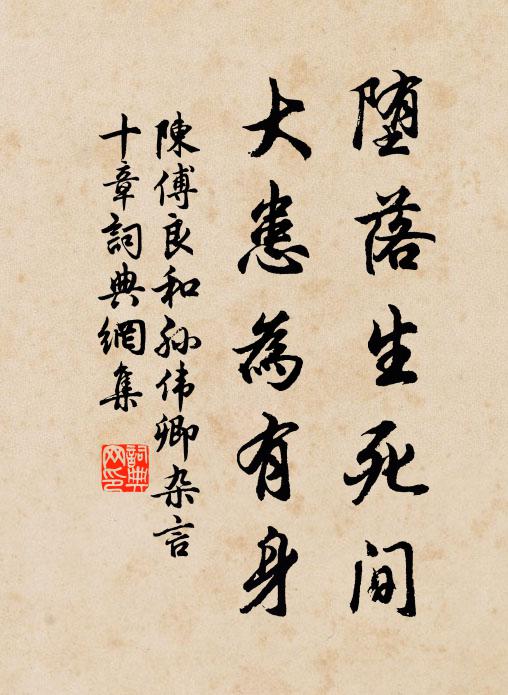 堕落生死间
大患為有身
陳傅良和孙伟卿杂言
十章詞典網集
詞典網印